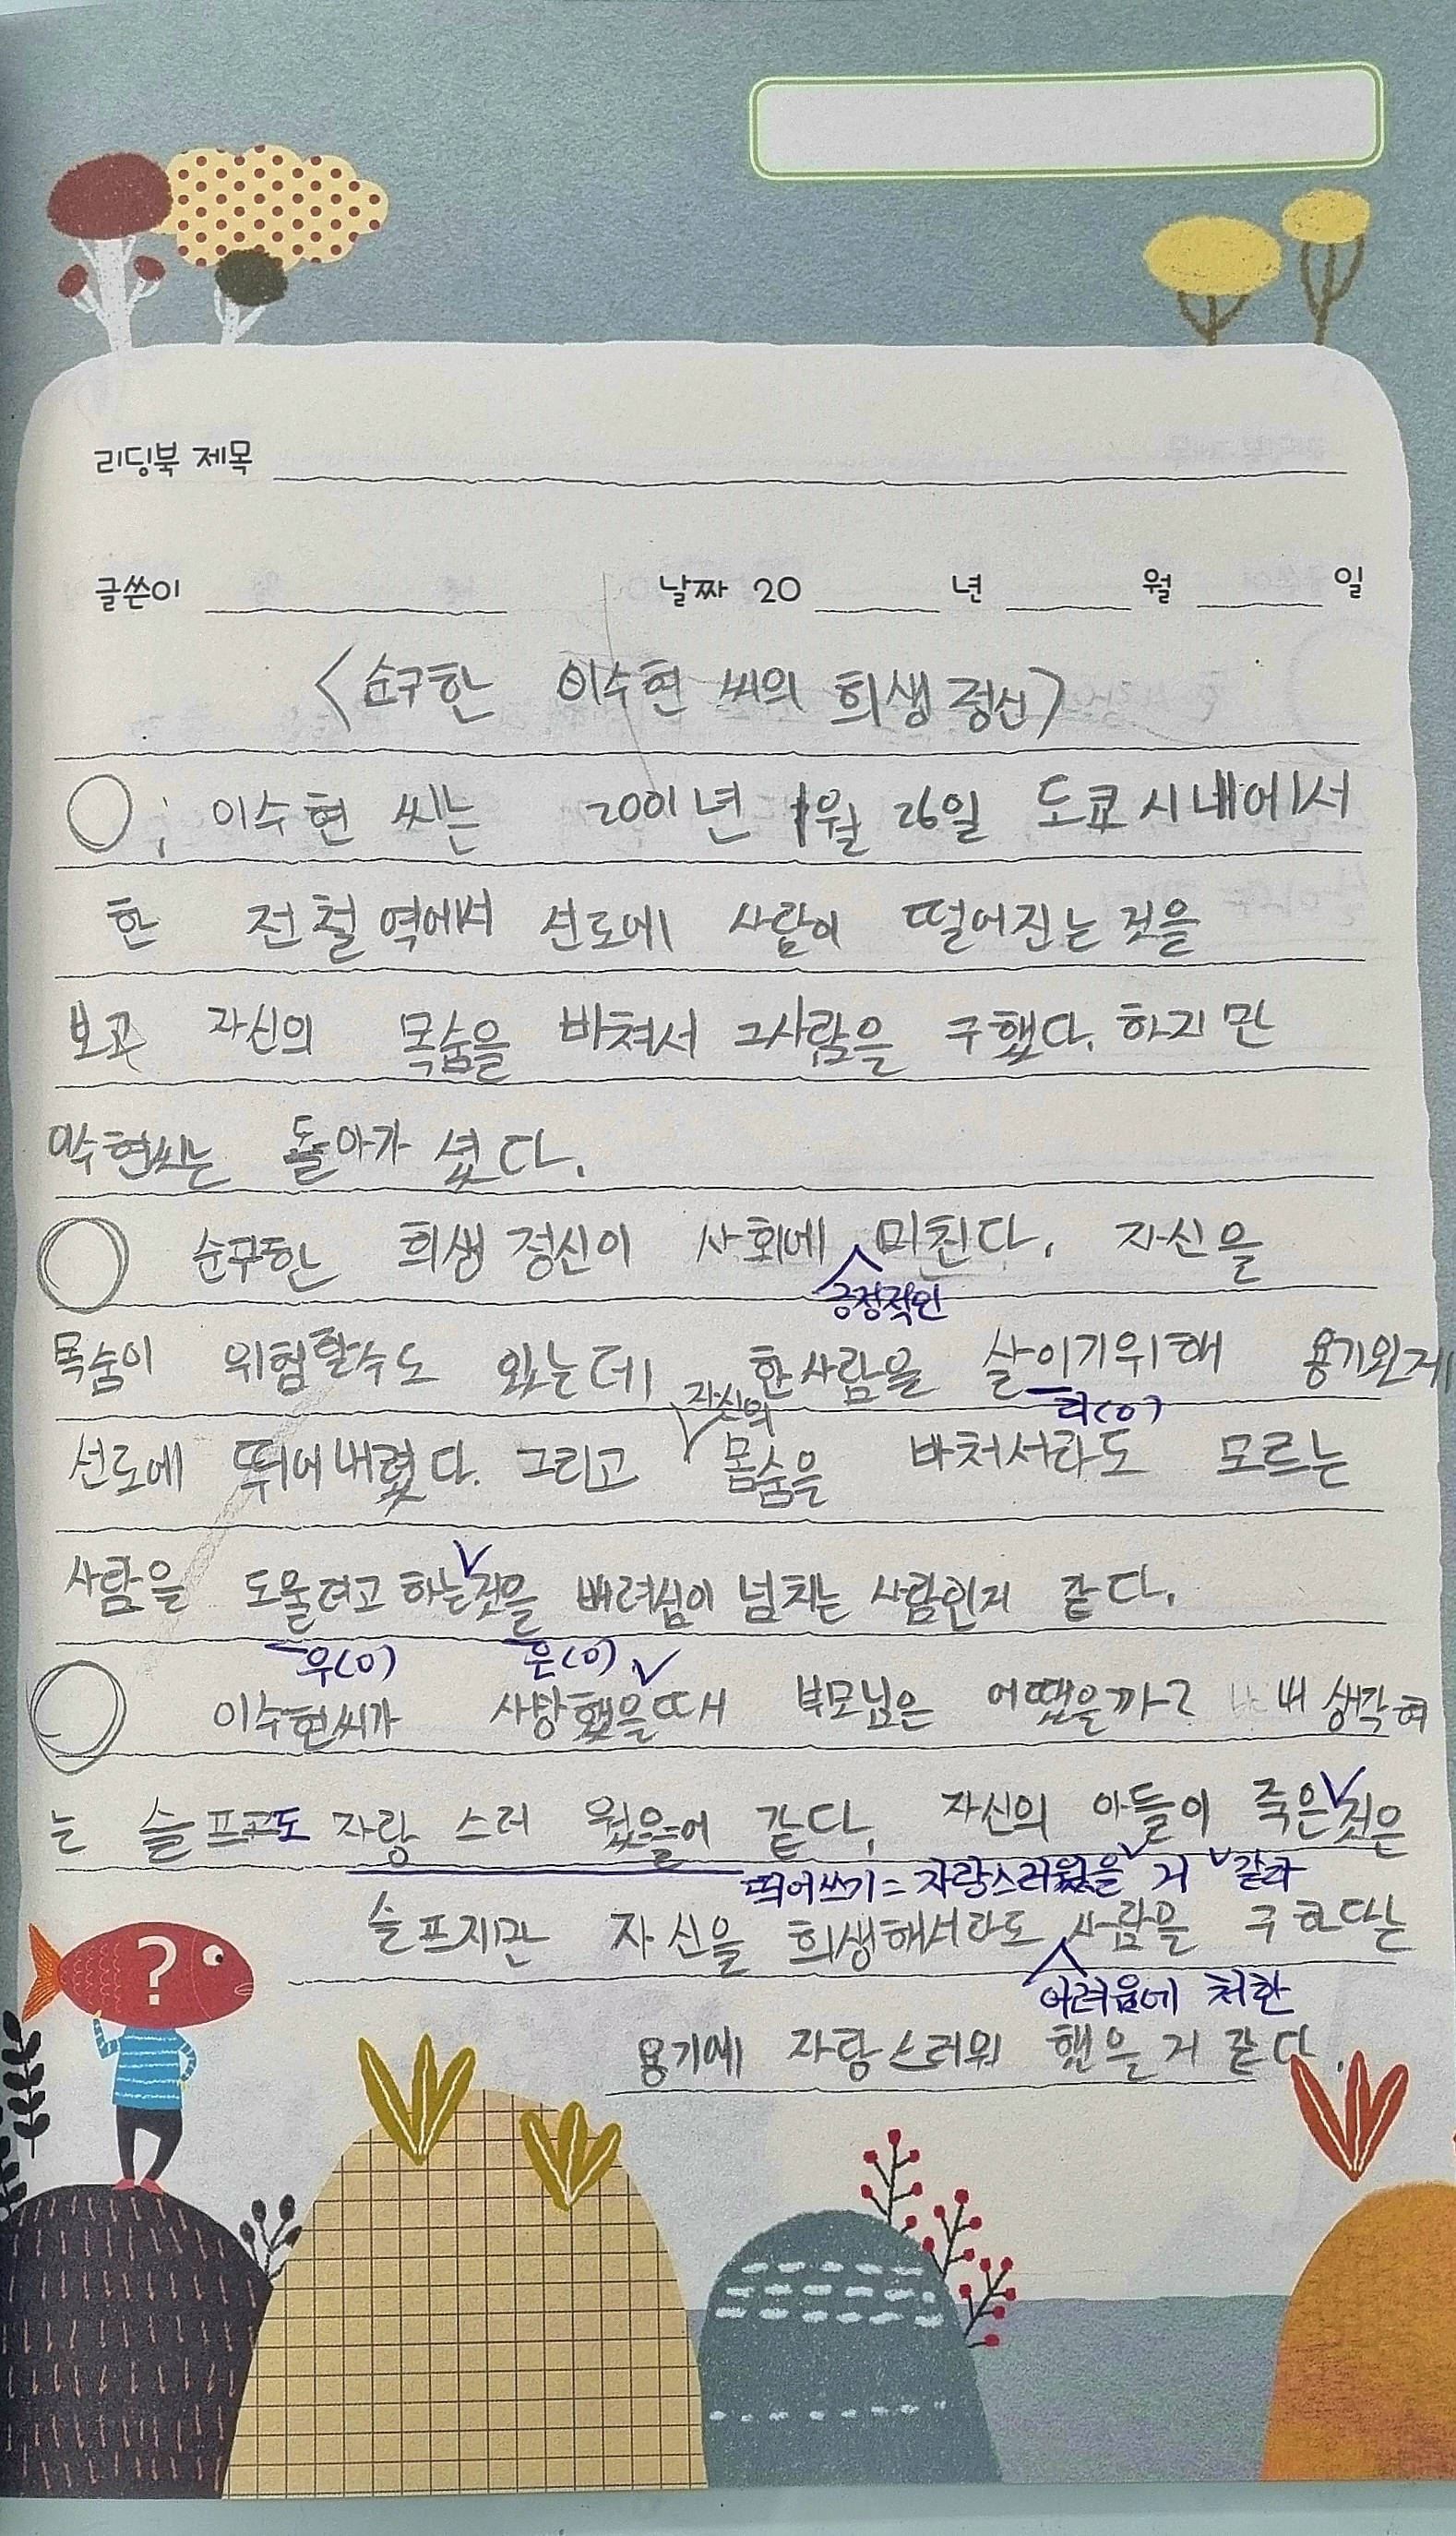 리딩북 제목
글쓴이 날짜 20 년 월 일
<순구한 이수현 씨의 희생 정신>
○; 이수현 씨는 2001년 1월 26일 도쿄 시내에서
한 전철역에서 선로에 사람이 떨어진는 것을
보고 자신의 목숨을 바쳐서 그사람을 구했다. 하지만
이수현씨는 돌아가 셨다.
○ 순구한 희생 정신이 사회에 미친다. 자신을
긍정적인
목숨이 위험할수도 있는데 한사람을 살이기위해 용기있게
자신의 리(o)
선로에 뛰어내렸다. 그리고 몸숨을 바처서라도 모르는
사람을 도울려고 하는것을 배려심이 넘치는 사람인지 같다.
우(o) 은(o)
○ 이수현씨가 사망했을때 부모님은 어땠을까? 내 생각
는 슬프고도 자랑 스러 웠을 같다. 자신의 아들이 죽은것은
띄어쓰기= 자랑스러웠을 거 같다
슬프지만 자신을 희생해서라도 사람을 구한다는
어려움에 처한
용기에 자랑스러워 했을거 같다.
?